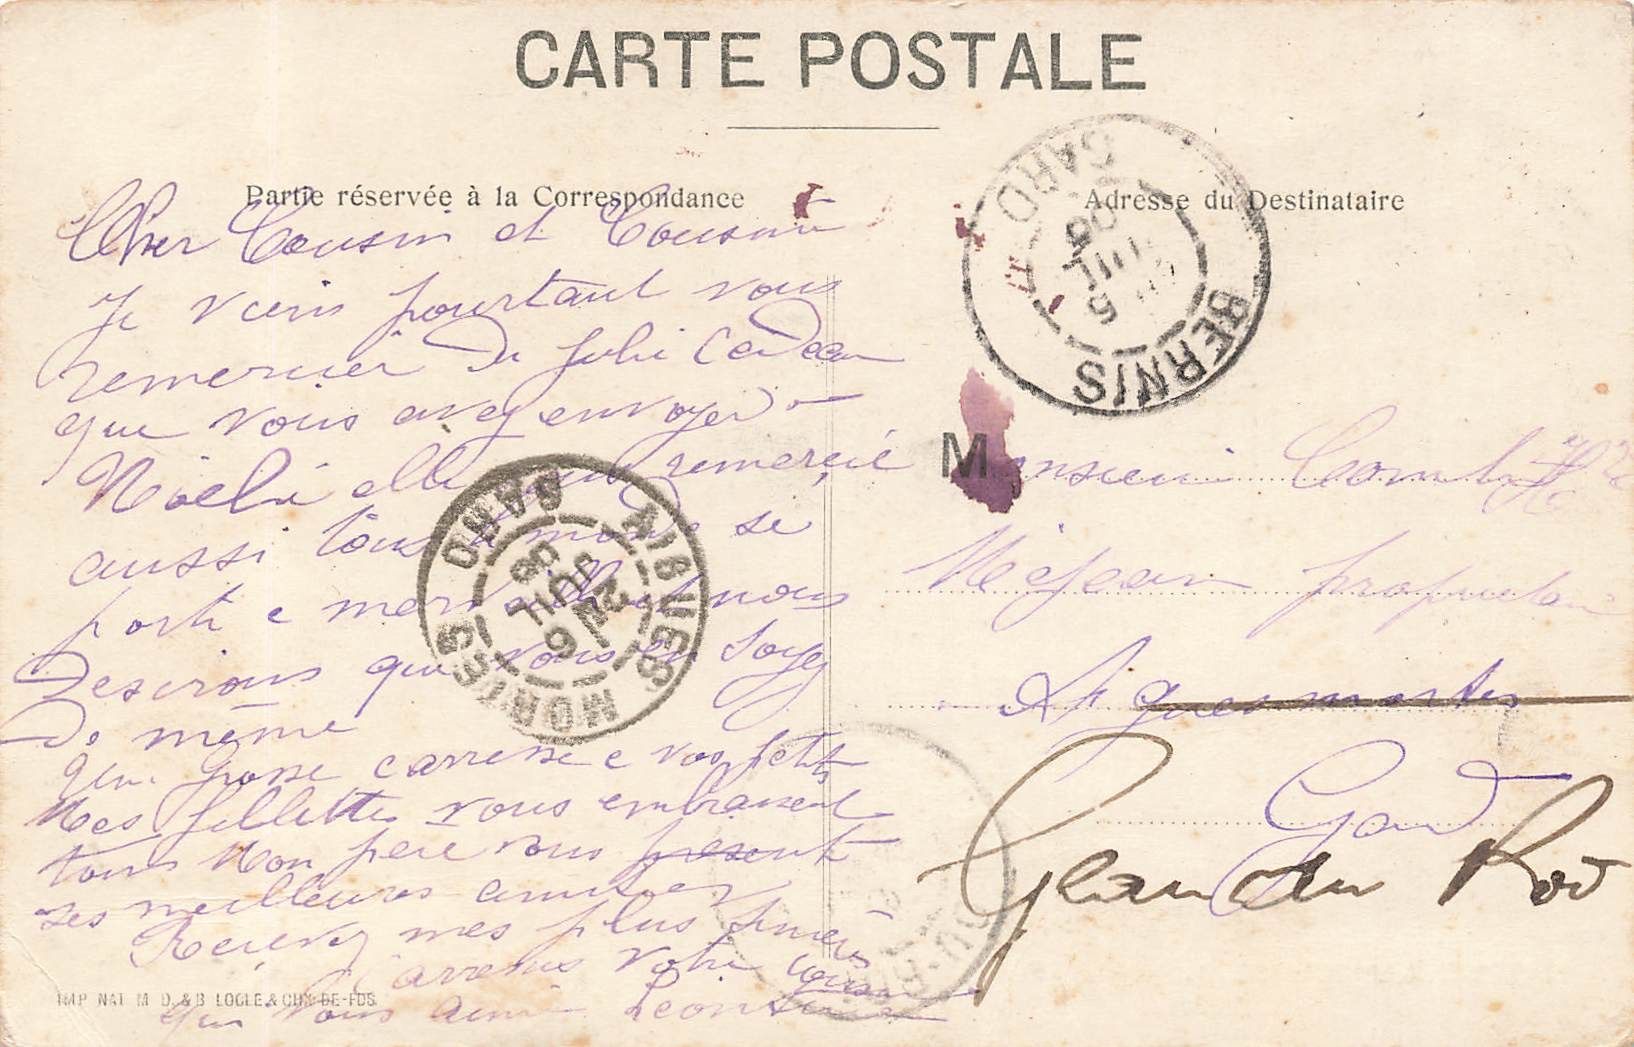 CARTE POSTALE
Partie réservée à la Correspondance
Adresse du Destinataire
Cher Cousin et Cousine
Je viens pourtant vous
remercier du joli Cadeau
que vous avez envoyer a
elle vous remercie
aussi tous le monde se
porte a merveille nous
Desirons que vous en soyez
De même
Une grosse carresse a vos petits
Mes fillettes vous embrassent
tous Mon pere vous present
ses meilleures amitiés
Recevez mes plus
votre
qui vous aime Leontine
IMP NAT M D. & B LOCLE & CHX-DE-FDS
BERNIS
GARD
5
JUIL
06
Monsieur
Mejean propriétaire
Aiguesmortes
Gard
Grau du Roi
AIGUES MORTES
GARD
6
JUIL
06